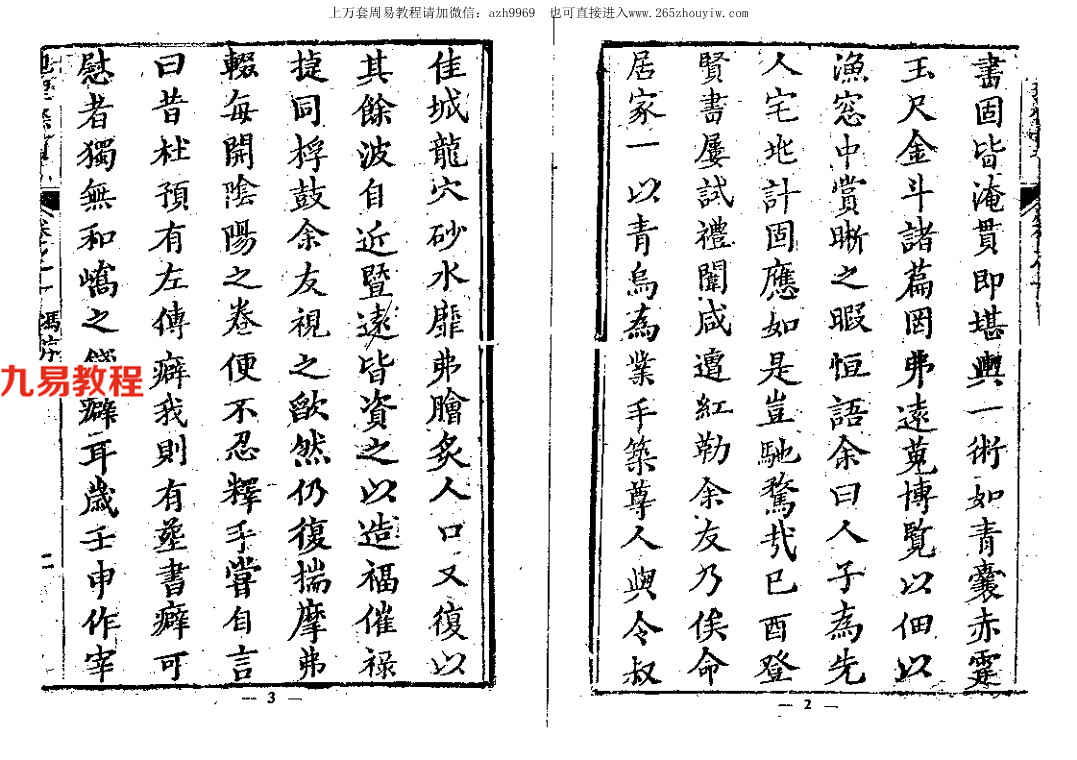 上万套周易教程请加微信：azh9969 也可直接进入www.265zhouyiw.com
書固皆淹貫即堪輿一術如青囊赤霆
玉尺金斗諸篇罔弗遠蒐博覽以佃以
漁窓中賞晰之暇恒語余曰人子為先
人宅兆計固應如是豈馳騖哉已酉登
賢書屢試禮闈咸遭紅勒余友乃俟命
居家一以青烏為業手築尊人與令叔
— 2 —
佳城龍穴砂水靡弗膾炙人口又復以
其餘波自近暨遠皆資之以造福催祿
捷同桴鼓余友視之歉然仍復揣摩弗
輟每開陰陽之卷便不忍釋手嘗自言
曰昔杜預有左傳癖我則有塋書癖可
慰者獨無和嶠之錢癖耳歲壬申作宰
— 3 —
九易教程